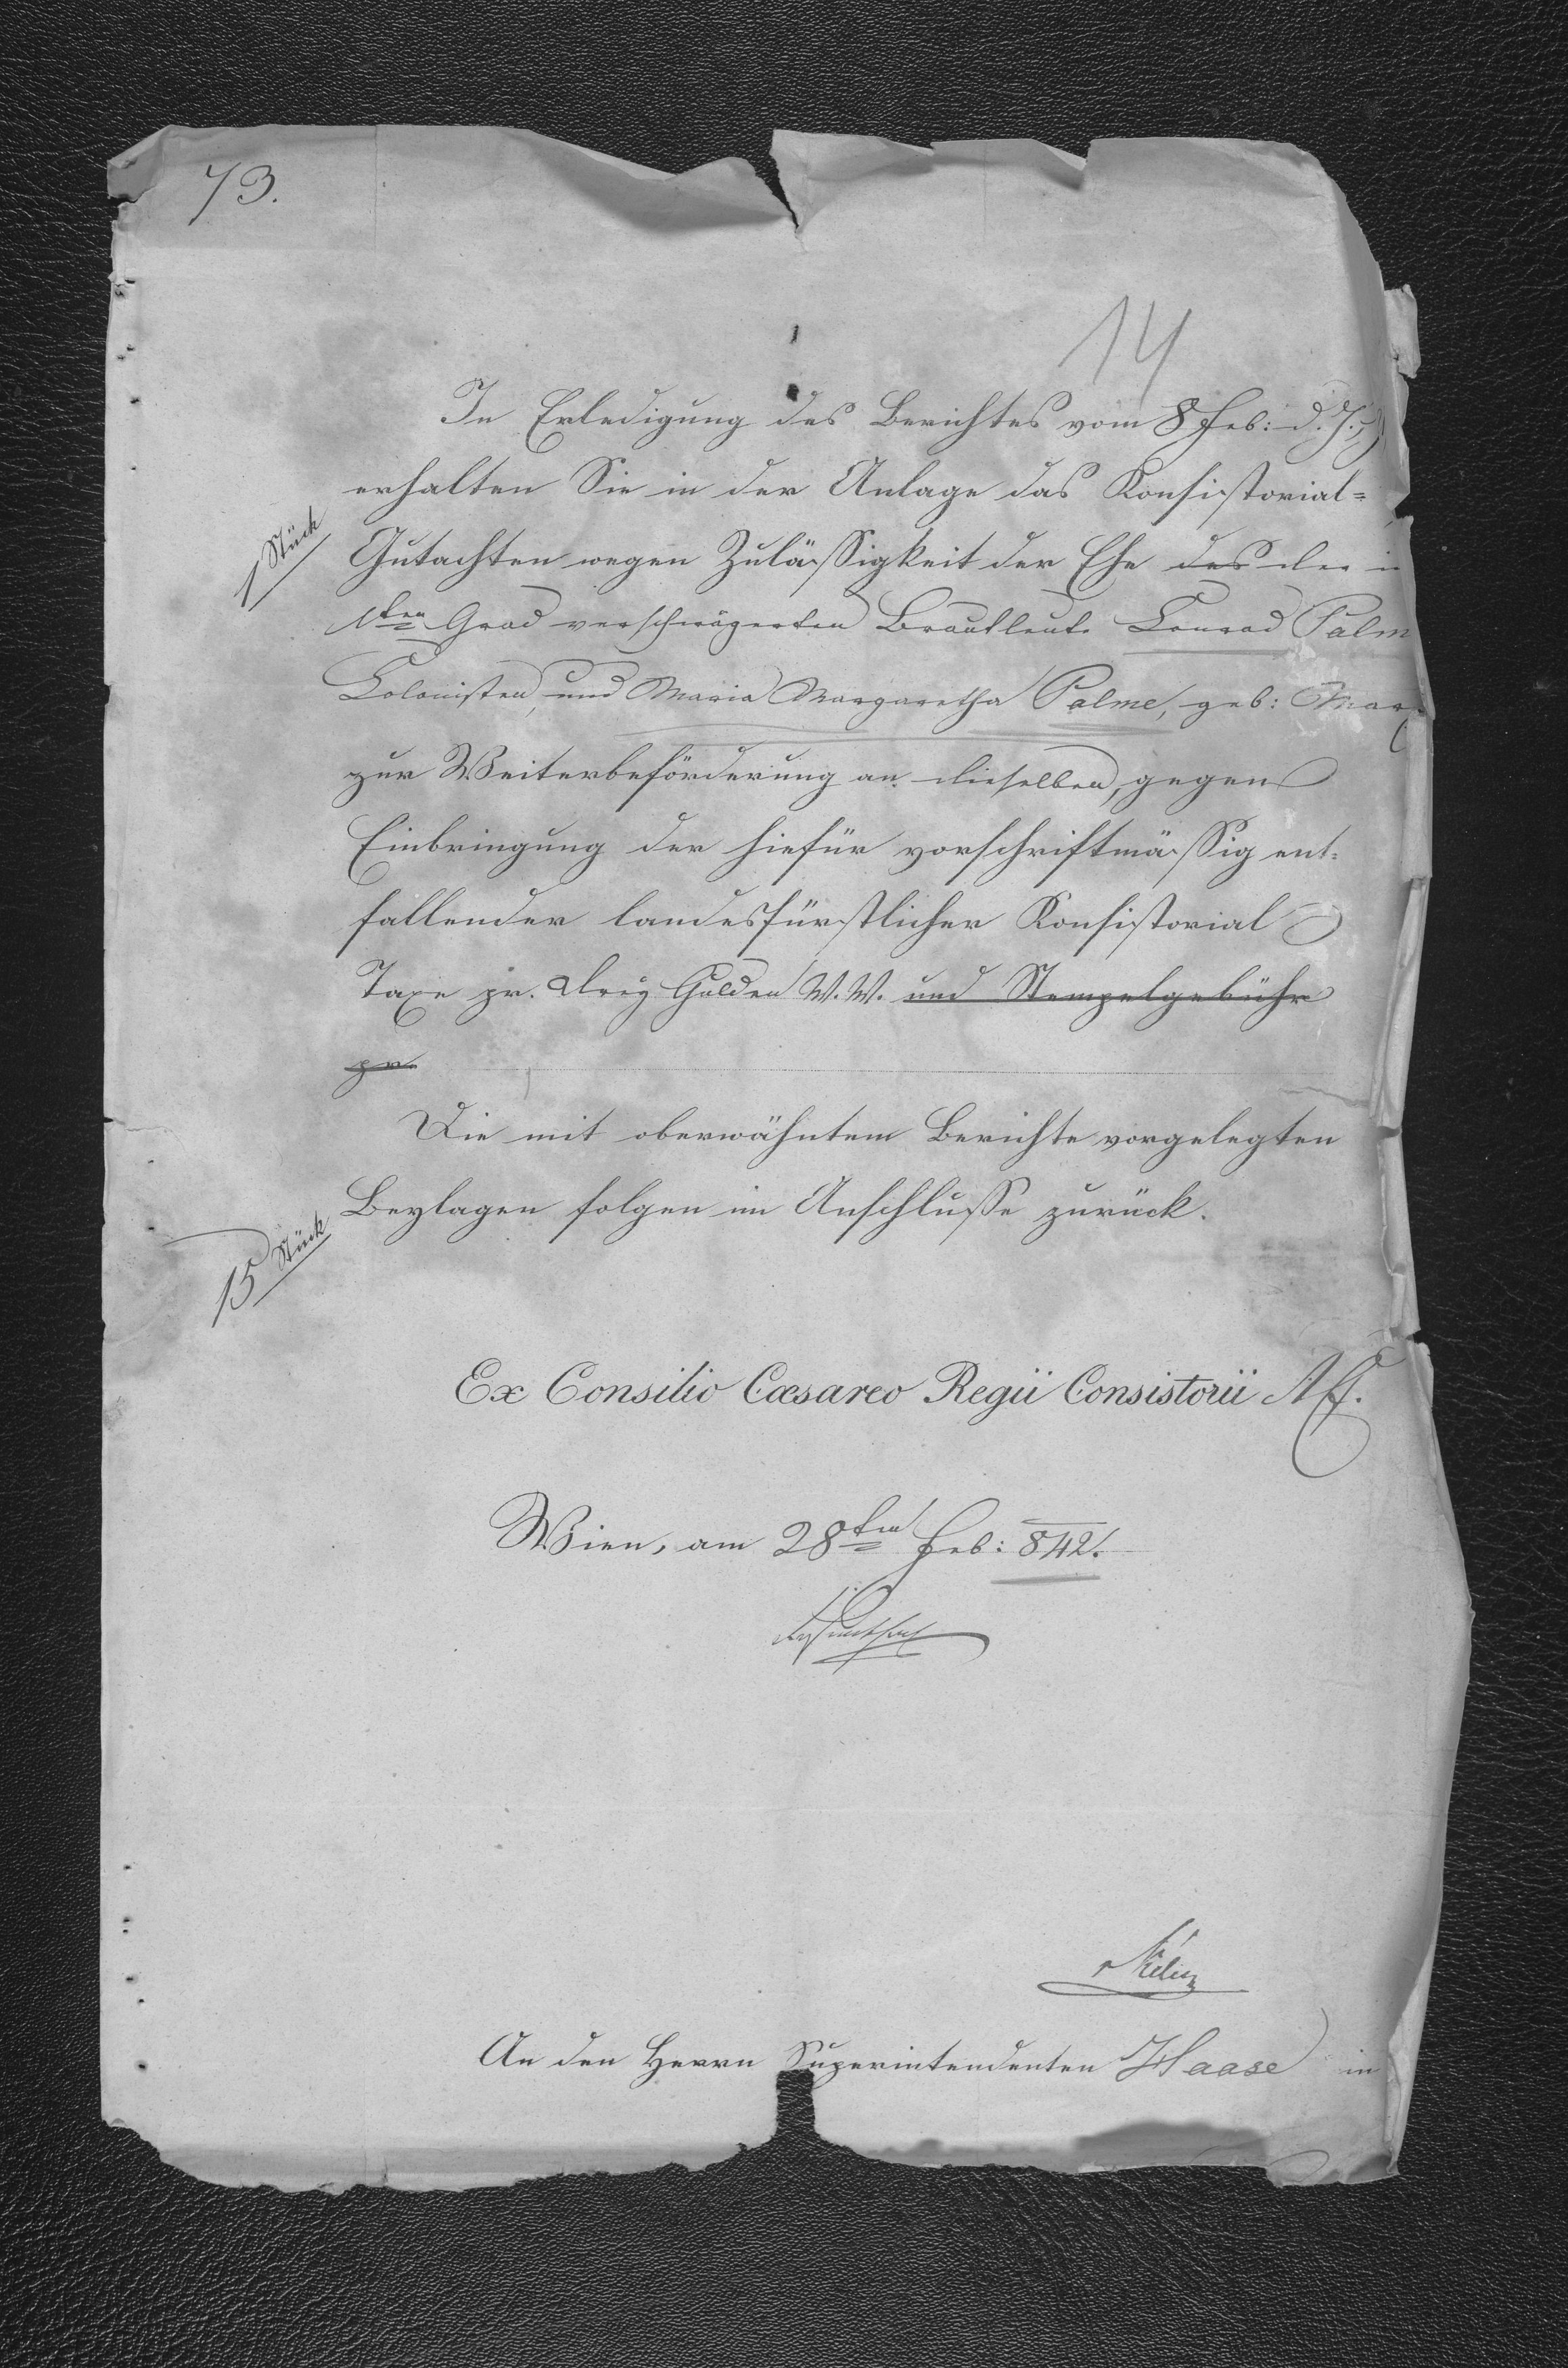 73.
14
In Erledigung des Berichtes vom 8 Feb: d. J.
erhalten Sie in der Anlage das Konsistorial-
1 Stück
Gutachten wegen Zulässigkeit der Ehe des der i
1ten Grad verschwägerten Brautleute Conrad Palm
Colonisten, und Maria Margaretha Palme, geb: Mar
zur Weiterbeförderung an dieselben, gegen
Einbringung der hiefür vorschriftmässig ent-
fallender landesfürstlicher Konsistorial
Taxe pr. Drey Gulden W. W. und Stempelgebühr
pr.
Die mit oberwähntem Berichte vorgelegten
Beylagen folgen im Anschlusse zurück.
15 Stück
Ex Consilio Cæsareo Regii Consistorii A C.
Wien, am 28ten Feb: 842.
An den Herrn Superintendenten Haase in